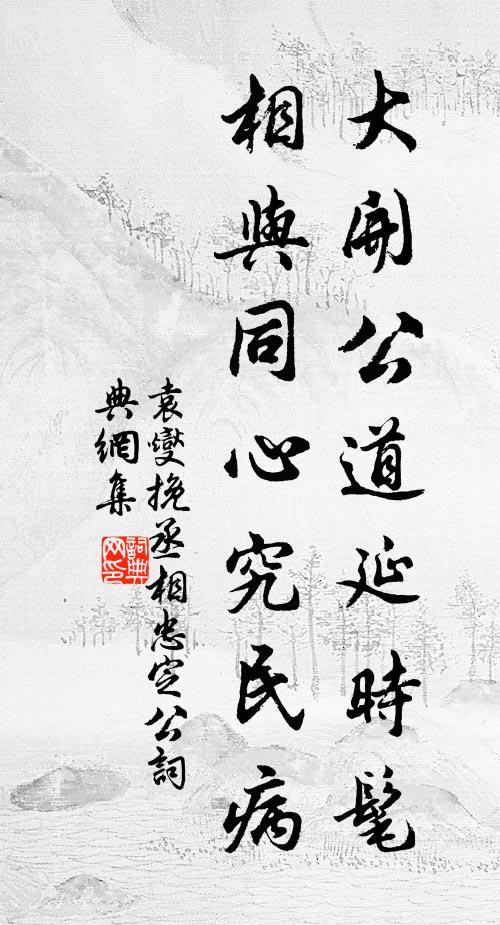 大開公道延時髦
相與同心究民病
袁燮挽丞相忠定公詞
典網集
詞典
网印